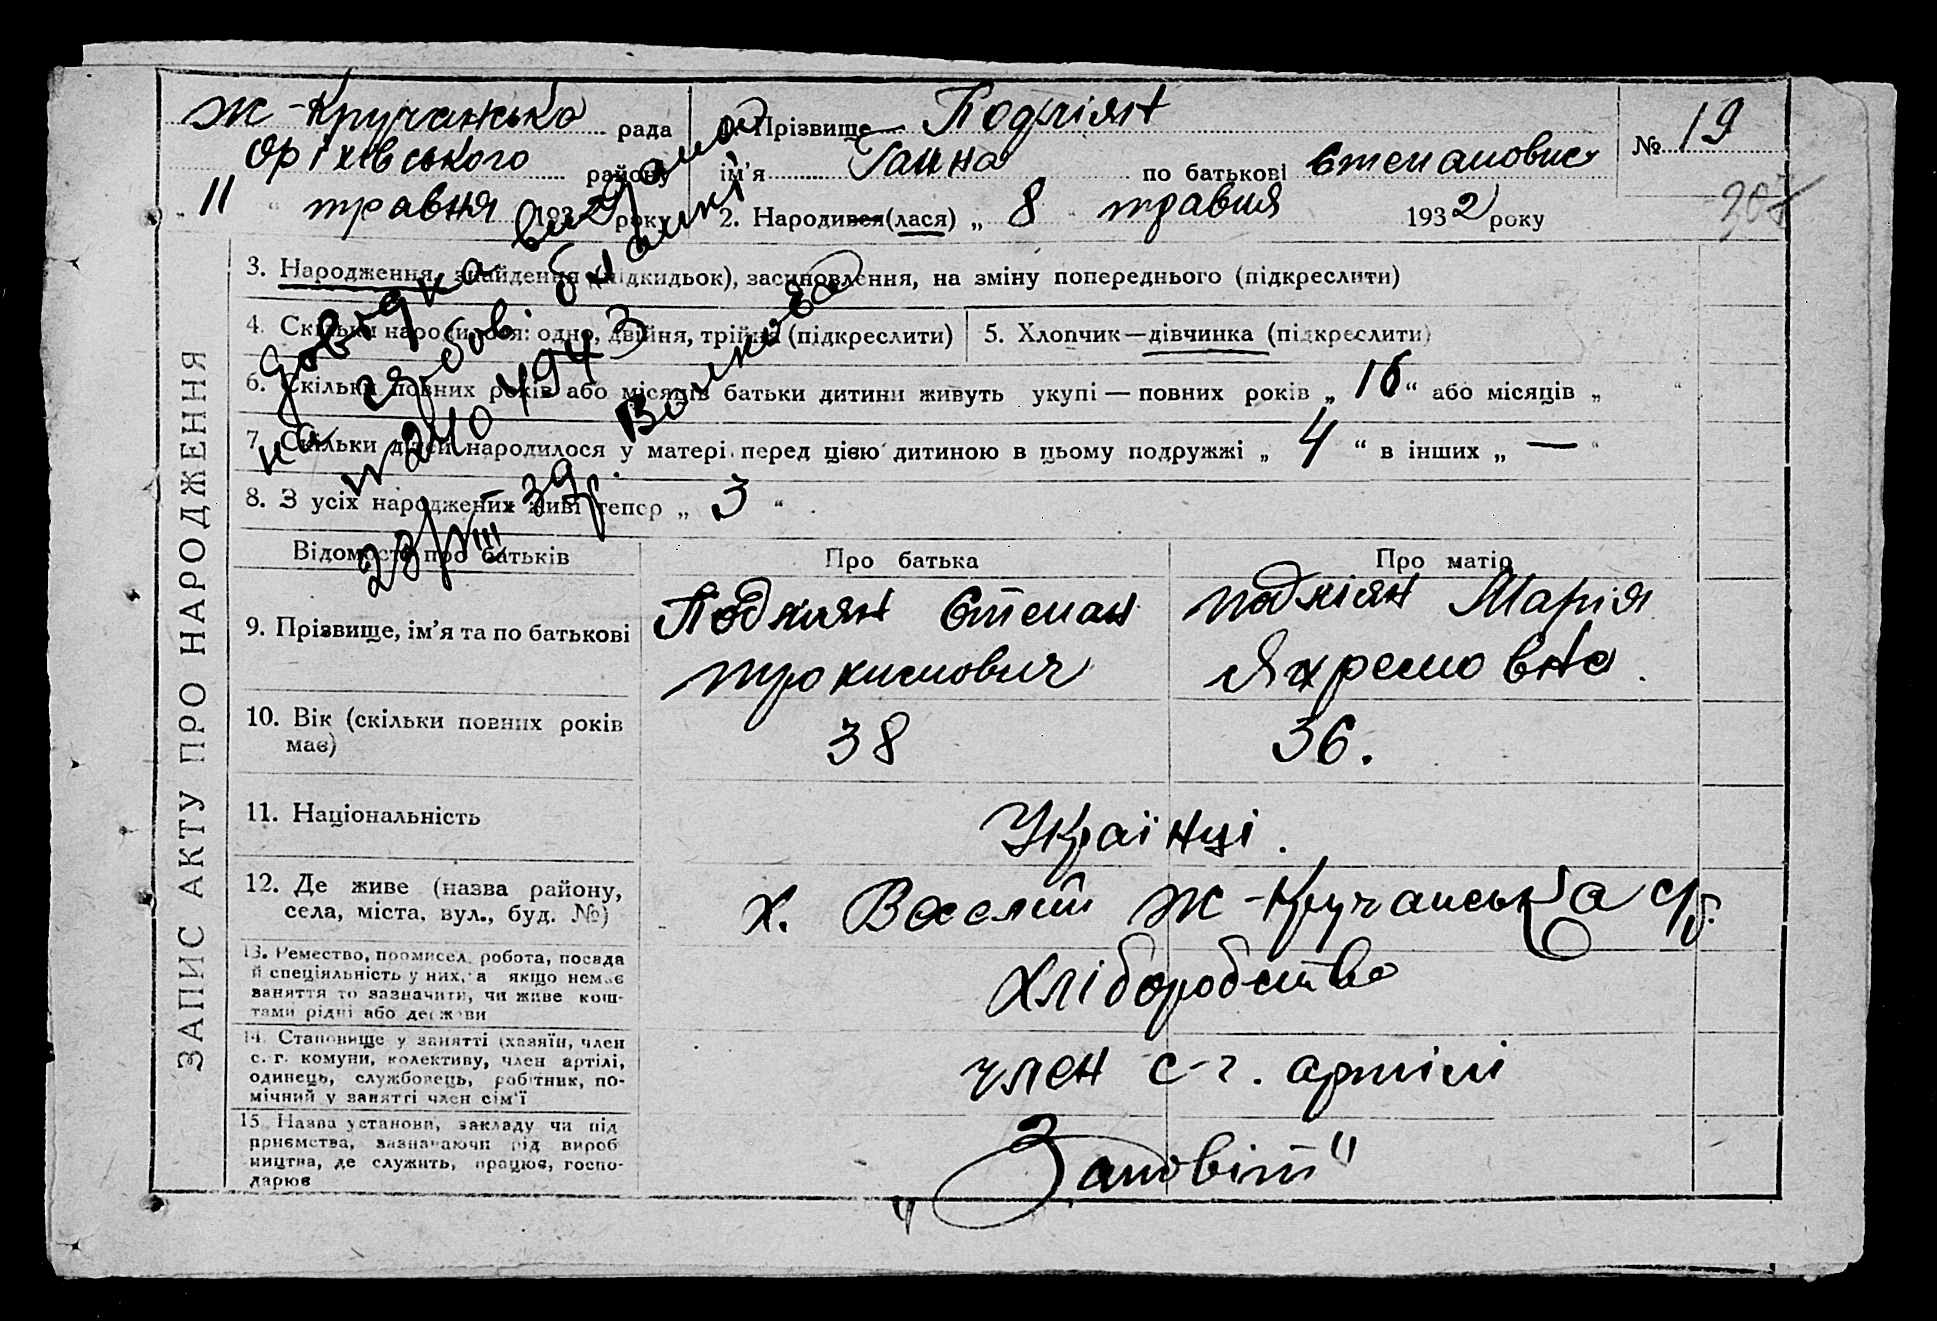 ЗАПИС АКТУ ПРО НАРОДЖЕННЯ
Ж-Кручанська рада
Оріхівського району
„ 11 “ травня 1932 року
1. Прізвище Подкіян
ім’я Ганна по батькові Степановна
2. Народився(лася) „ 8 “ травня 1932 року
№ 19
307
3. Народження, знайдення (підкидьок), засиновлення, на зміну попереднього (підкреслити)
4. Скільки народилося: одно, двійня, трійня (підкреслити)
5. Хлопчик—дівчинка (підкреслити)
6. Скільки повних років або місяців батьки дитини живуть укупі — повних років „ 16 “ або місяців „ “
7. Скільки дітей народилося у матері перед цією дитиною в цьому подружжі „ 4 “ в інших „ — “
8. З усіх народжених живі тепер „ 3 “
довідка видана
на бланкі
№ 240 1943
23/VIII 39р.
Відомості про батьків
Про батька
Про матір
9. Прізвище, ім’я та по батькові
Подкіян Степан
Трохимович
Подкіян Марія
Яхремовна.
10. Вік (скільки повних років
має)
38
36.
11. Національність
Українці.
12. Де живе (назва району,
села, міста, вул., буд. №)
х. Веселий Ж-Кручанська с/р.
13. Ремество, промисел, робота, посада
й спеціяльність у них, а якщо немає
заняття то зазначити, чи живе кош-
тами рідні або держави
хліборобство
14. Становище у занятті (хазяїн, член
с. г. комуни, колективу, член артілі,
одинець, службовець, робітник, по-
мічний у занятті член сім’ї
член с-г. артілі
15. Назва установи, закладу чи під
приємства, зазначаючи рід вироб
ництва, де служить, працює, госпо-
дарює
„Заповіт“